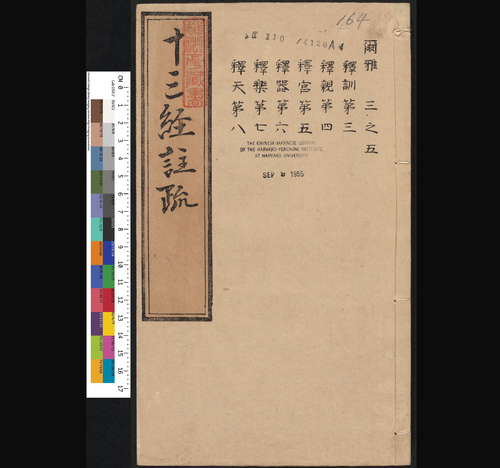 164
爾雅 三之五
釋訓第三
釋親第四
釋宮第五
釋器第六
釋樂第七
釋天第八
十三經註疏
THE CHINESE-JAPANESE LIBRARY
OF THE HARVARD-YENCHING INSTITUTE
AT HARVARD UNIVERSITY
SEP 1955
CM 0
1
2
3
4
5
6
7
8
9
10
11
12
13
14
15
16
17